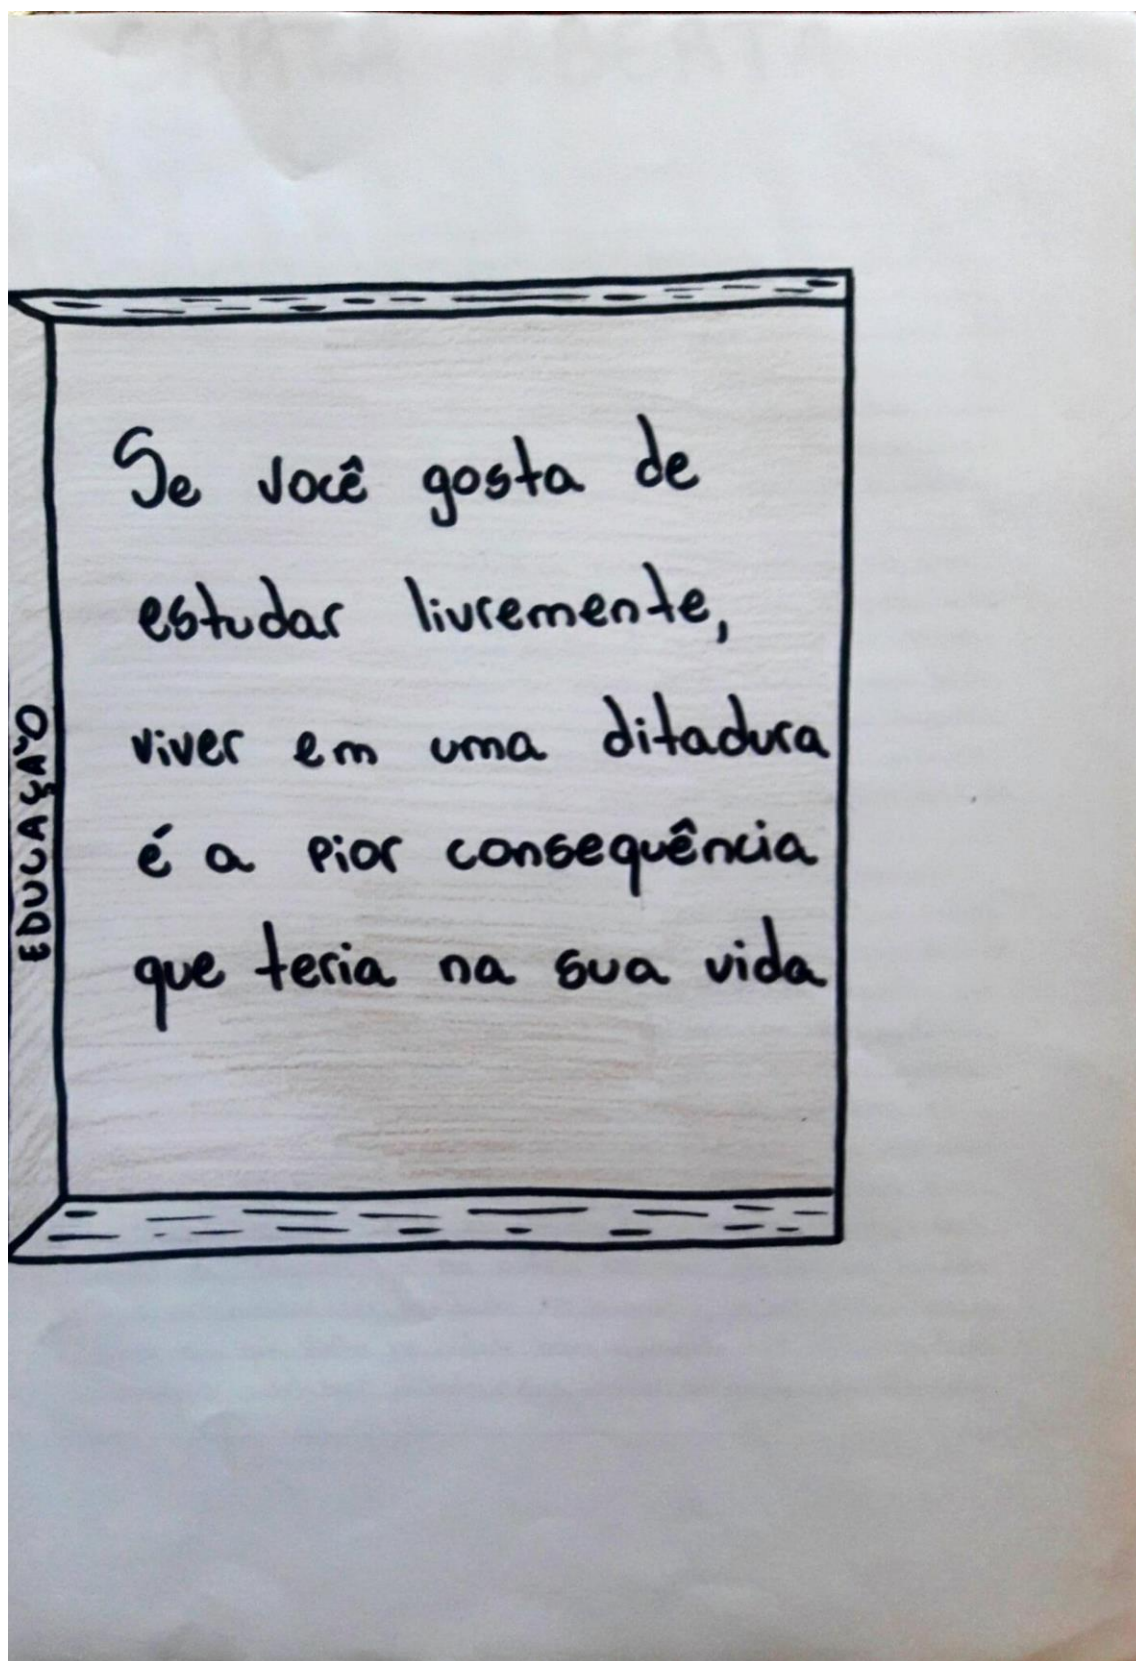 Se você gosta de
estudar livremente,
viver em uma ditadura
é a pior consequência
que teria na sua vida
EDUCAÇÃO